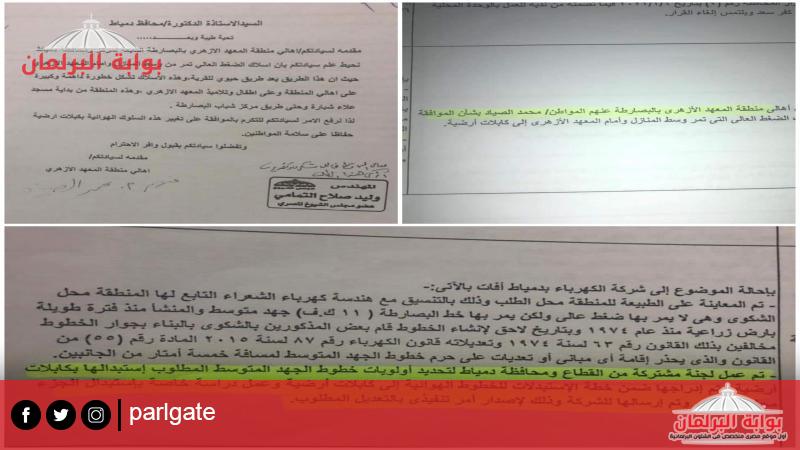 السيد الاستاذة الدكتورة/محافظ دمياط
تحية طيبة وبعد ......
مقدمه لسيادتكم/اهالي منطقة المعهد الازهري بالبصارطة
نحيط علم سيادتكم بان اسلاك الضغط العالي تمر من
حيث ان هذا الطريق يعد طريق حيوي للقرية،وهذه الأسلاك تشكل خطورة داهمة وكبيرة
على اهالي المنطقة وعلى اطفال وتلاميذ المعهد الازهري ،وهذه المنطقة من بداية مسجد
علاء شبارة وحتى طريق مركز شباب البصارطة .
لذا نرفع الامر لسيادتكم للتكرم بالموافقة على تغيير هذه السلوك الهوائية بكابلات ارضية
حفاظا على سلامة المواطنين.
وتفضلوا سيادتكم بقبول وافر الاحترام
مقدمه لسيادتكم/
اهالي منطقة المعهد الازهري
المهندس
وليد صلاح التمامي
عضو مجلس الشيوخ المصري
بوابة البرلمان
كفر سعد ويلتمس إلغاء القرار.
اهالى منطقة المعهد الأزهرى بالبصارطة عنهم المواطن/ محمد الصياد بشأن الموافقة
الضغط العالى التى تمر وسط المنازل وأمام المعهد الأزهرى إلى كابلات أرضية.
بإحالة الموضوع إلى شركة الكهرباء بدمياط أفادت بالآتى:-
- تم المعاينة على الطبيعة للمنطقة محل الطلب وذلك بالتنسيق مع هندسة كهرباء الشعراء التابع لها المنطقة محل
الشكوى وهى لا يمر بها ضغط عالى ولكن يمر بها خط البصارطة ( ١١ ك.ف) جهد متوسط والمنشأ منذ فترة طويلة
بارض زراعية منذ عام ١٩٧٤ وبتاريخ لاحق لإنشاء الخطوط قام بعض المذكورين بالشكوى بالبناء بجوار الخطوط
مخالفين بذلك القانون رقم ٦٣ لسنة ١٩٧٤ وتعديلاته قانون الكهرباء رقم ٨٧ لسنة ٢٠١٥ المادة رقم (٥٥) من
القانون والذى يحذر إقامة أى مبانى أو تعديات على حرم خطوط الجهد المتوسط لمسافة خمسة أمتار من الجانبين.
- تم عمل لجنة مشتركة من القطاع ومحافظة دمياط لتحديد أولويات خطوط الجهد المتوسط المطلوب إستبدالها بكابلات
إدراجها ضمن خطة الإستبدلات للخطوط الهوائية إلى كابلات أرضية وعمل دراسة خاصة باستبدال الجزء
وتم إرسالها للشركة وذلك لإصدار أمر تنفيذى بالتعديل المطلوب.
parlgate
بوابة البرلمان
أول موقع مصرى متخصص فى الشئون البرلمانية